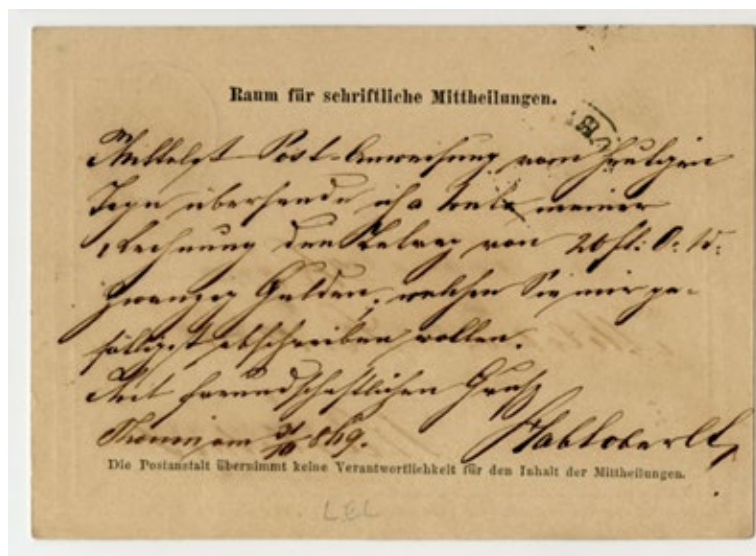 Raum für schriftliche Mittheilungen.
Mittelst Post-Anweisung vom heutigen
Tage übersende ich a meiner
Rechnung den Betrag von 20 fl: Ö: W:
Zwanzig Gulden, welchen Sie mir ge-
fälligst abschreiben wollen.
Mit freundschaftlichen Gruß
am 869.
Die Postanstalt übernimmt keine Verantwortlichkeit für den Inhalt der Mittheilungen.
LEL